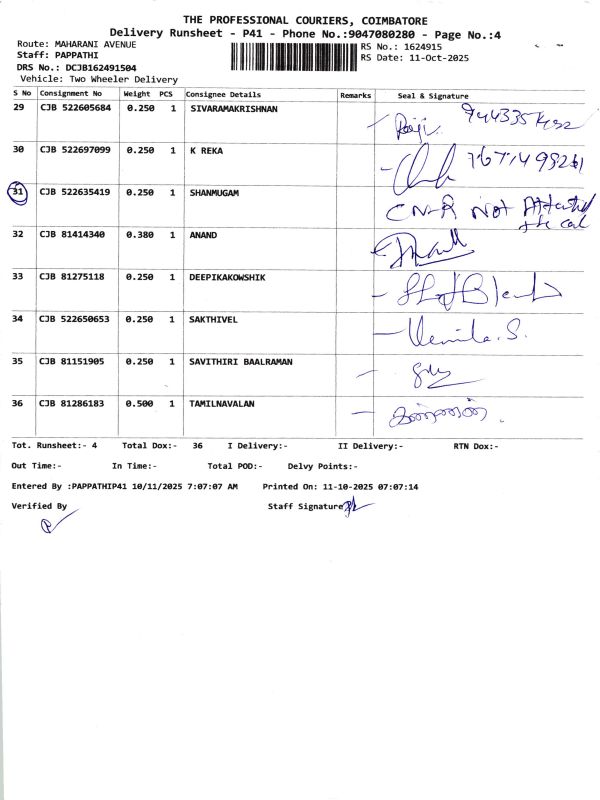 THE PROFESSIONAL COURIERS, COIMBATORE
Delivery Runsheet - P41 - Phone No.:9047080280 - Page No.:4
Route: MAHARANI AVENUE
RS No.: 1624915
Staff: PAPPATHI
RS Date: 11-Oct-2025
DRS No.: DCJB162491504
Vehicle: Two Wheeler Delivery
S No Consignment No Weight PCS Consignee Details Remarks Seal & Signature
29 CJB 522605684 0.250 1 SIVARAMAKRISHNAN
30 CJB 522697099 0.250 1 K REKA
31 CJB 522635419 0.250 1 SHANMUGAM CN-R Not Attentid
the cal
32 CJB 81414340 0.380 1 ANAND
33 CJB 81275118 0.250 1 DEEPIKAKOWSHIK
34 CJB 522650653 0.250 1 SAKTHIVEL
35 CJB 81151905 0.250 1 SAVITHIRI BAALRAMAN
36 CJB 81286183 0.500 1 TAMILNAVALAN
Tot. Runsheet:- 4 Total Dox:- 36 I Delivery:- II Delivery:- RTN Dox:-
Out Time:- In Time:- Total POD:- Delvy Points:-
Entered By :PAPPATHIP41 10/11/2025 7:07:07 AM Printed On: 11-10-2025 07:07:14
Verified By Staff Signature